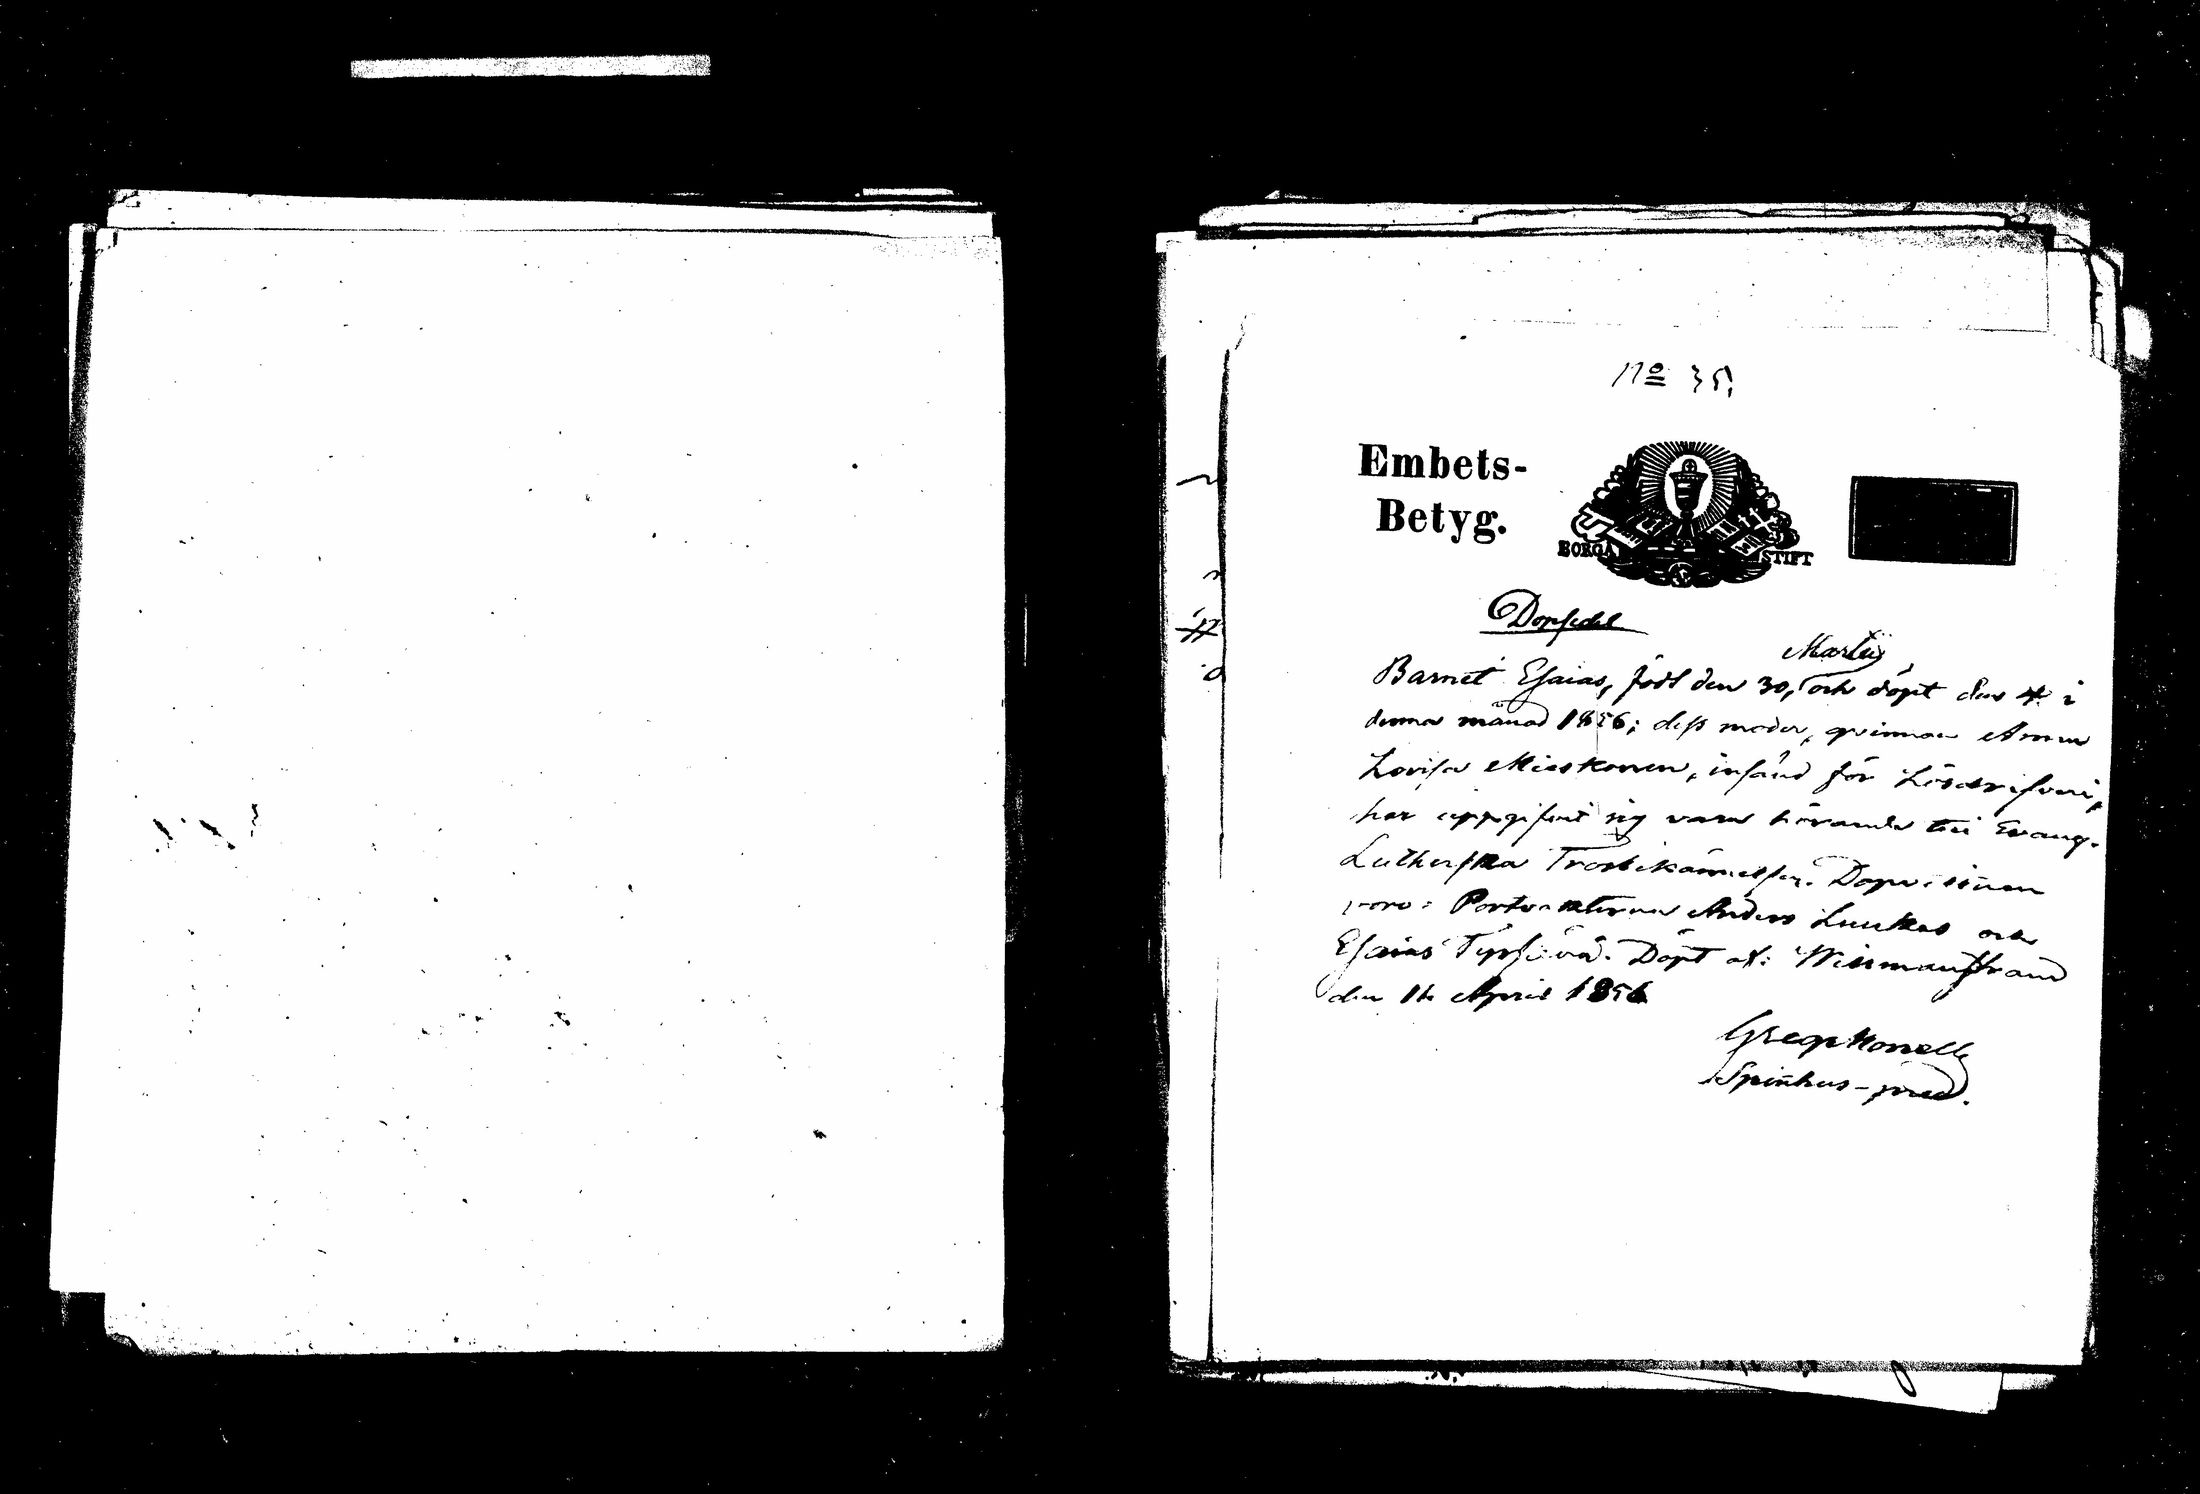 No 35.
Embets-
Betyg.
BORGÅ STIFT
Dopsedel
Martii
Barnet Esaias, född den 30, och döpt den 4 i
denna månad 1856; dess moder, qvinnan Anna
Lovisa Mieskonen, insänd för Lösdrifveri,
har uppgifvit sig vara hörande till Evang.
Lutherska Trosbekännelsen. Dopvittnen
voro: Anders Luukas och
Esaias Döpt af: Willmanstrand
den 16 April 1856
Spinhus-pred.